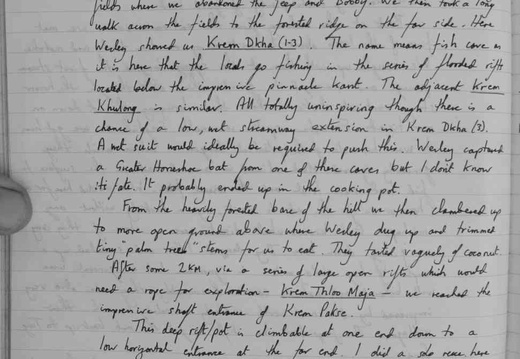 fields where we abandoned the jeep and Bobby. We then took a long
walk across the fields to the forested ridge on the far side. Here
Wesley showed us Krem Dkha (1-3). The name means fish cave as
it is here that the locals go fishing in the series of flooded rifts
located below the impressive pinnacle karst. The adjacent Krem
Khulong is similar. All totally uninspiring though there is a
chance of a low, wet streamway extension in Krem Dkha (3).
A wet suit would ideally be required to push this. Wesley captured
a Greater Horseshoe bat from one of these caves but I don't know
its fate. It probably ended up in the cooking pot.
From the heavily forested base of the hill we then clambered up
to more open ground above where Wesley dug up and trimmed
tiny "palm tree" stems for us to eat. They tasted vaguely of coconut.
After some 2KM, via a series of large open rifts which would
need a rope for exploration - Krem Thloo Maja - we reached the
impressive shaft entrance of Krem Pakse.
This deep rift/pot is climbable at one end down to a
low horizontal entrance at the far end. I did a solo recce here